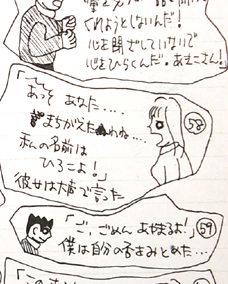 くれようとしないんだ!
心を閉ざしていないで
心をひらくんだ。あきこさん!」
「あっそ あなた....
まちがえたわね....
私の名前は
ひろこよ!」
彼女は大声で言った
58
「ご,ごめん あやまるよ!」
59
僕は自分の否をみとめた...